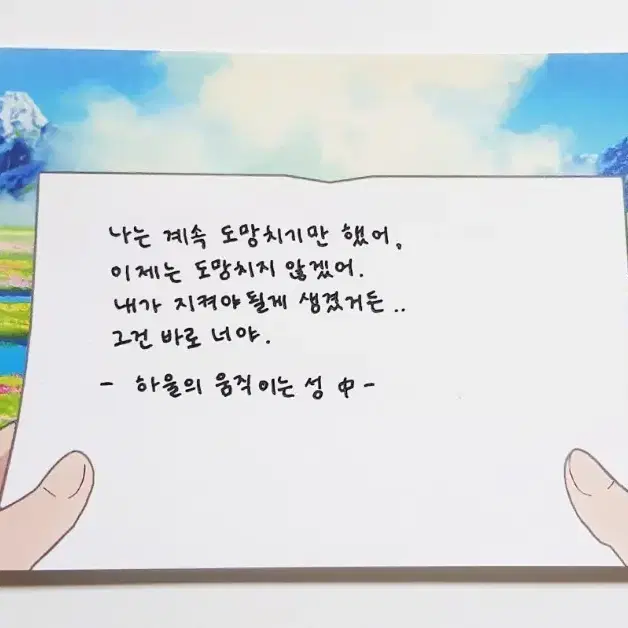 나는 계속 도망치기만 했어,
이제는 도망치지 않겠어.
내가 지켜야 될게 생겼거든..
그건 바로 너야.
- 하울의 움직이는 성 中 -